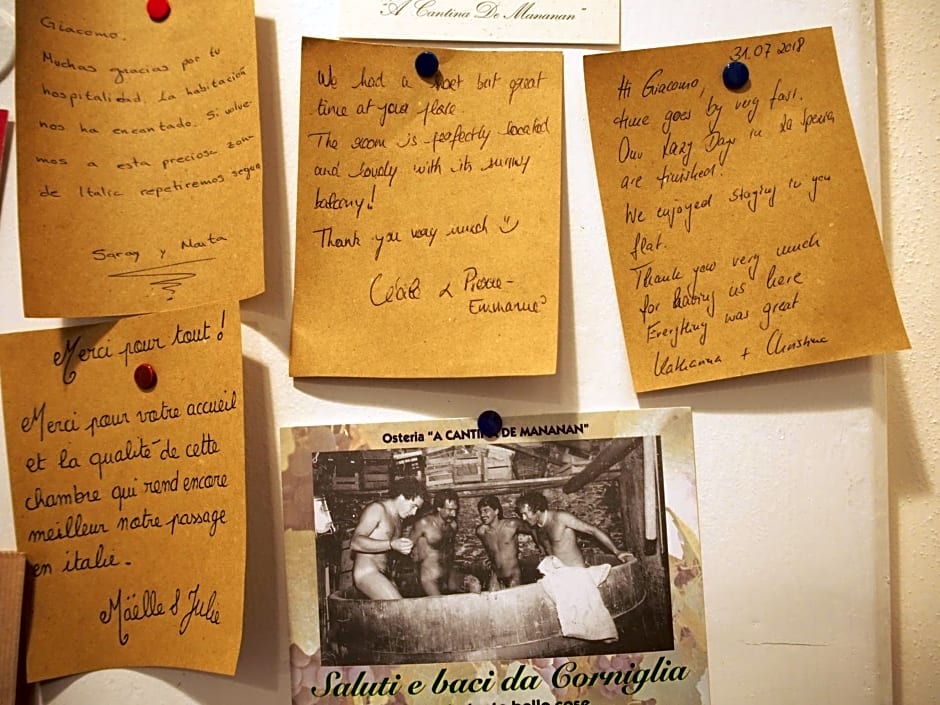 "A Cantina De Mananan"
Giacomo,
Muchas gracias por tu
hospitalidad. La habitación
nos ha encantado. Si volve-
mos a esta preciosa zona
de Italia repetiremos seguro
Saray y Marta
We had a short but great
time at your place.
The room is perfectly located
and lovely with its sunny
balcony!
Thank you very much
Cécile & Pierre-
Emmanuel
31.07 2018
Hi Giacomo,
time goes by very fast.
Our Lazy Days in La Spezia
are finished!
We enjoyed staying in you
flat.
Thank you very much
for having us here
Everything was great
Katharina + Christina
Merci pour tout!
Merci pour votre accueil
et la qualité de cette
chambre qui rend encore
meilleur notre passage
en italie.
Maëlle & Julie
Osteria "A CANTINA DE MANANAN"
Saluti e baci da Corniglia
belle cose